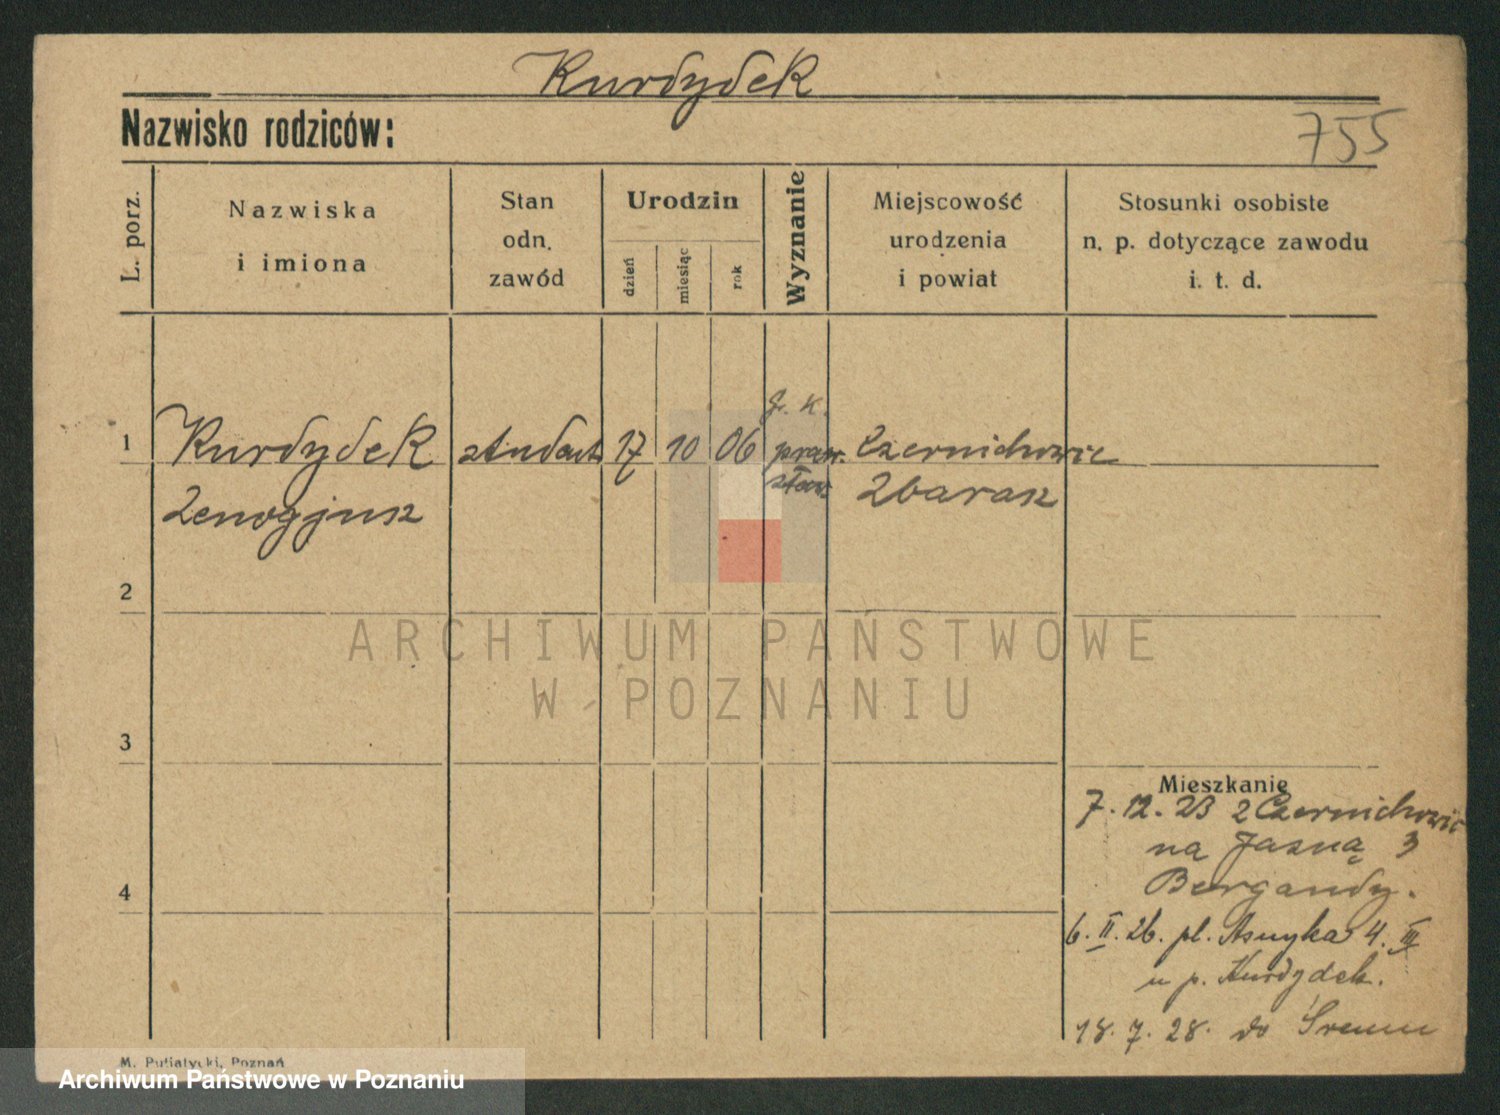 Kurdydek
Nazwisko rodziców:
755
L. porz.
Nazwiska
i imiona
Stan
odn.
zawód
Urodzin
dzień
miesiąc
rok
Wyznanie
Miejscowość
urodzenia
i powiat
Stosunki osobiste
n. p. dotyczące zawodu
i. t. d.
1
Kurdydek
Zenogjusz
student
17
10
06
praw.
Czernichowic
Zbarasz
2
3
4
ARCHIWUM PAŃSTWOWE
W POZNANIU
Mieszkanie
7.12.23 z Czernichowic
na Jasną 3
Bergandy.
6.II.26. pl. Asnyka 4. III
u p. Kurdydek.
18.7.28. do Śremu
M. Putiatycki, Poznań
Archiwum Państwowe w Poznaniu